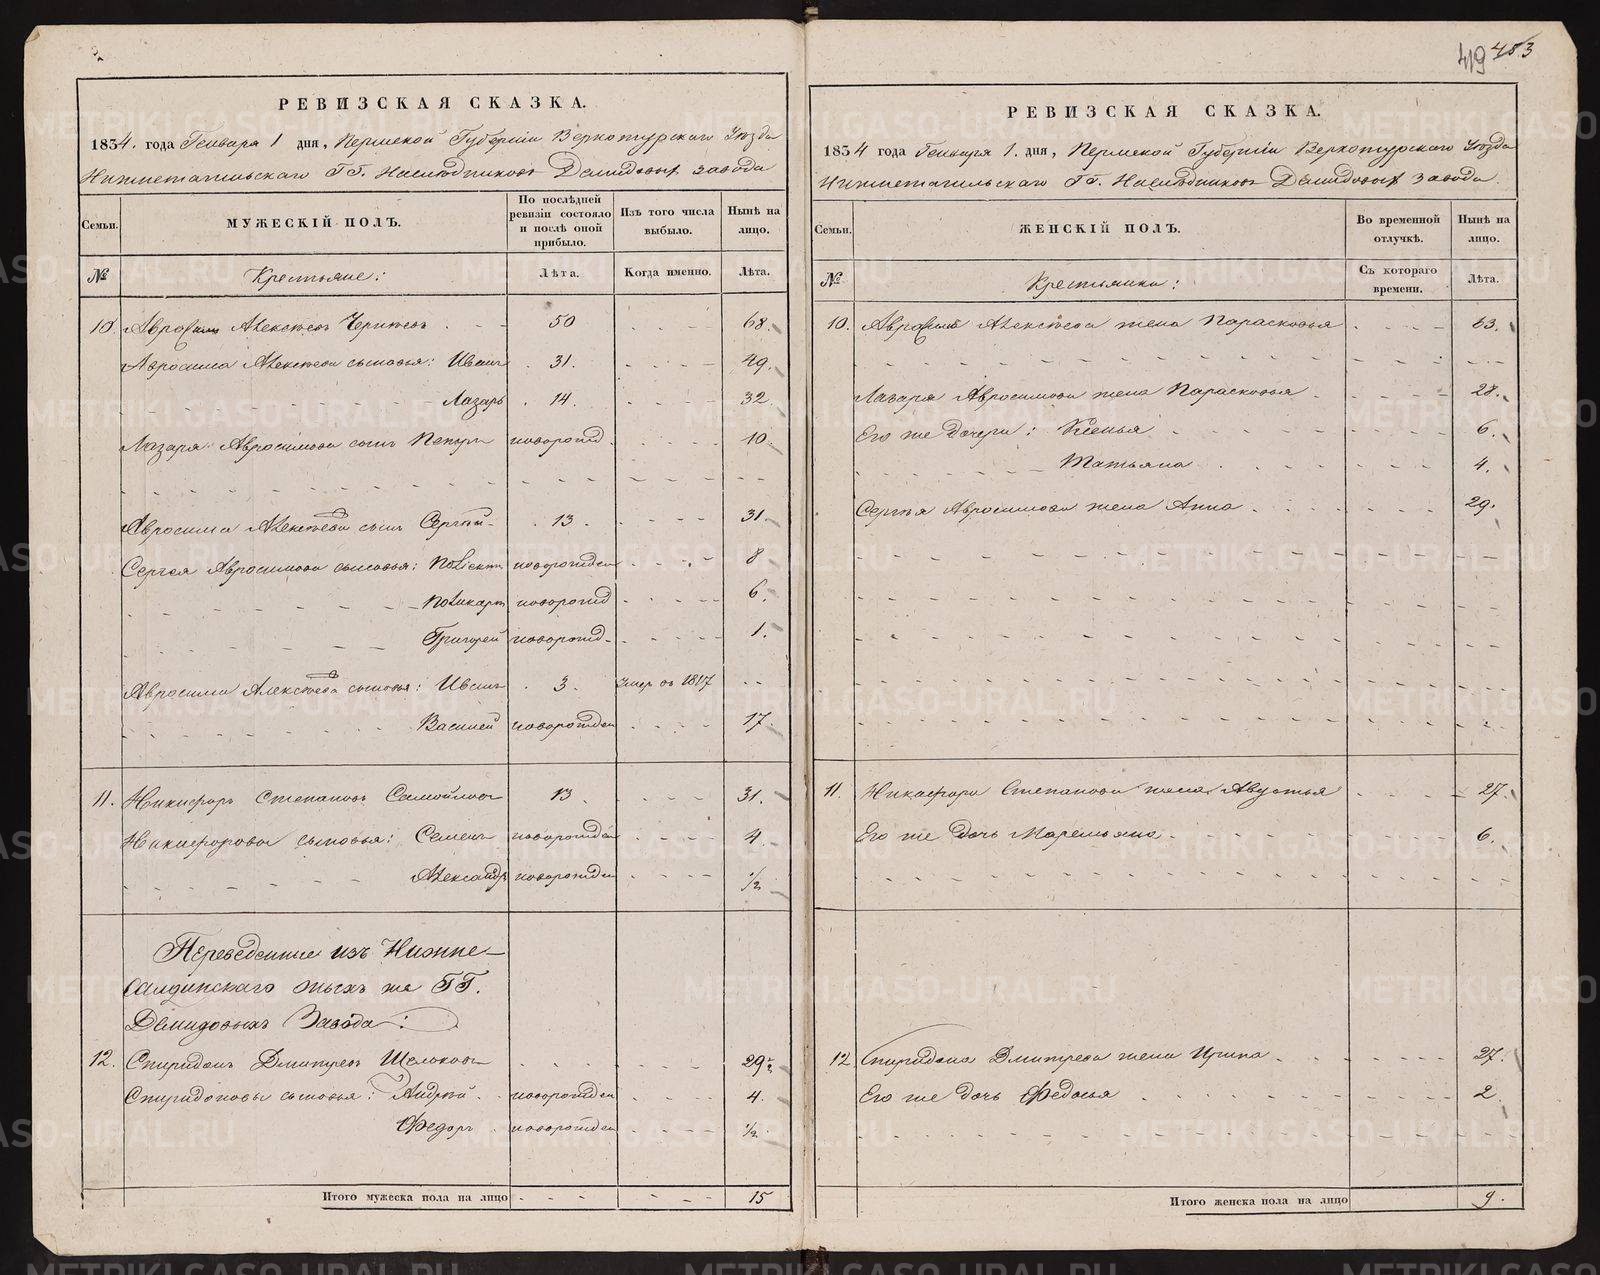 419 483
РЕВИЗСКАЯ СКАЗКА.
1834. года Генваря 1 дня, Пермской Губерніи Верхотурскаго Уѣзда
Нижнетагильскаго ГГ. Наслѣдниковъ Демидовыхъ завода
Семьи.
МУЖЕСКІЙ ПОЛЪ.
По послѣдней ревизіи состояло и послѣ оной прибыло.
Изъ того числа выбыло.
Нынѣ на лицо.
№ Крестьяне: Лѣта. Когда именно. Лѣта.
10. Алексѣевъ 50 68.
Авросима Алексѣева сыновья: Иванъ 31. 49.
Лазарь 14. 32.
Лазаря Авросимова сынъ новорожд 10.
Авросима Алексѣева сынъ Сергѣй 13. 31.
Сергея Авросимова сыновья: новорожден 8
Поликарпъ новорожд 6.
Григорей новорожд 1.
Авросима Алексѣева сыновья: Иванъ 3. Умеръ въ 1817
Василей новорожден 17.
11. Никифоръ Степановъ Самойловъ 13. 31.
Никифоровы сыновья: Семенъ новорожден 4.
Александръ новорожден 1/2
Переведенные изъ Нижне-
салдинскаго тѣхъ же ГГ.
Демидовыхъ Завода:
12. Спиридонъ Дмитревъ Щелоковъ 29
Спиридоновы сыновья: Андрей новорожден 4.
Федоръ новорожден 1/2
Итого мужеска пола на лицо 15
РЕВИЗСКАЯ СКАЗКА.
1834 года Генваря 1. дня, Пермской Губерніи Верхотурскаго Уѣзда
Нижнетагильскаго ГГ. Наслѣдниковъ Демидовыхъ завода
Семьи.
ЖЕНСКІЙ ПОЛЪ.
Во временной отлучкѣ.
Нынѣ на лицо.
№ Крестьянки: Съ котораго времени. Лѣта.
10. Алексѣева жена Парасковья 63.
Лазаря Авросимова жена Парасковья 28.
Его же дочери: Ксенья 6.
Татьяна 4.
Сергѣя Авросимова жена Анна 29.
11. Никифора Степанова жена Авдотья 27.
Его же дочь Маремьяна 6.
12 Спиридона Дмитрева жена Ирина 27.
Его же дочь Федосья 2.
Итого женска пола на лицо 9.
METRIKI.GASO-URAL.RU